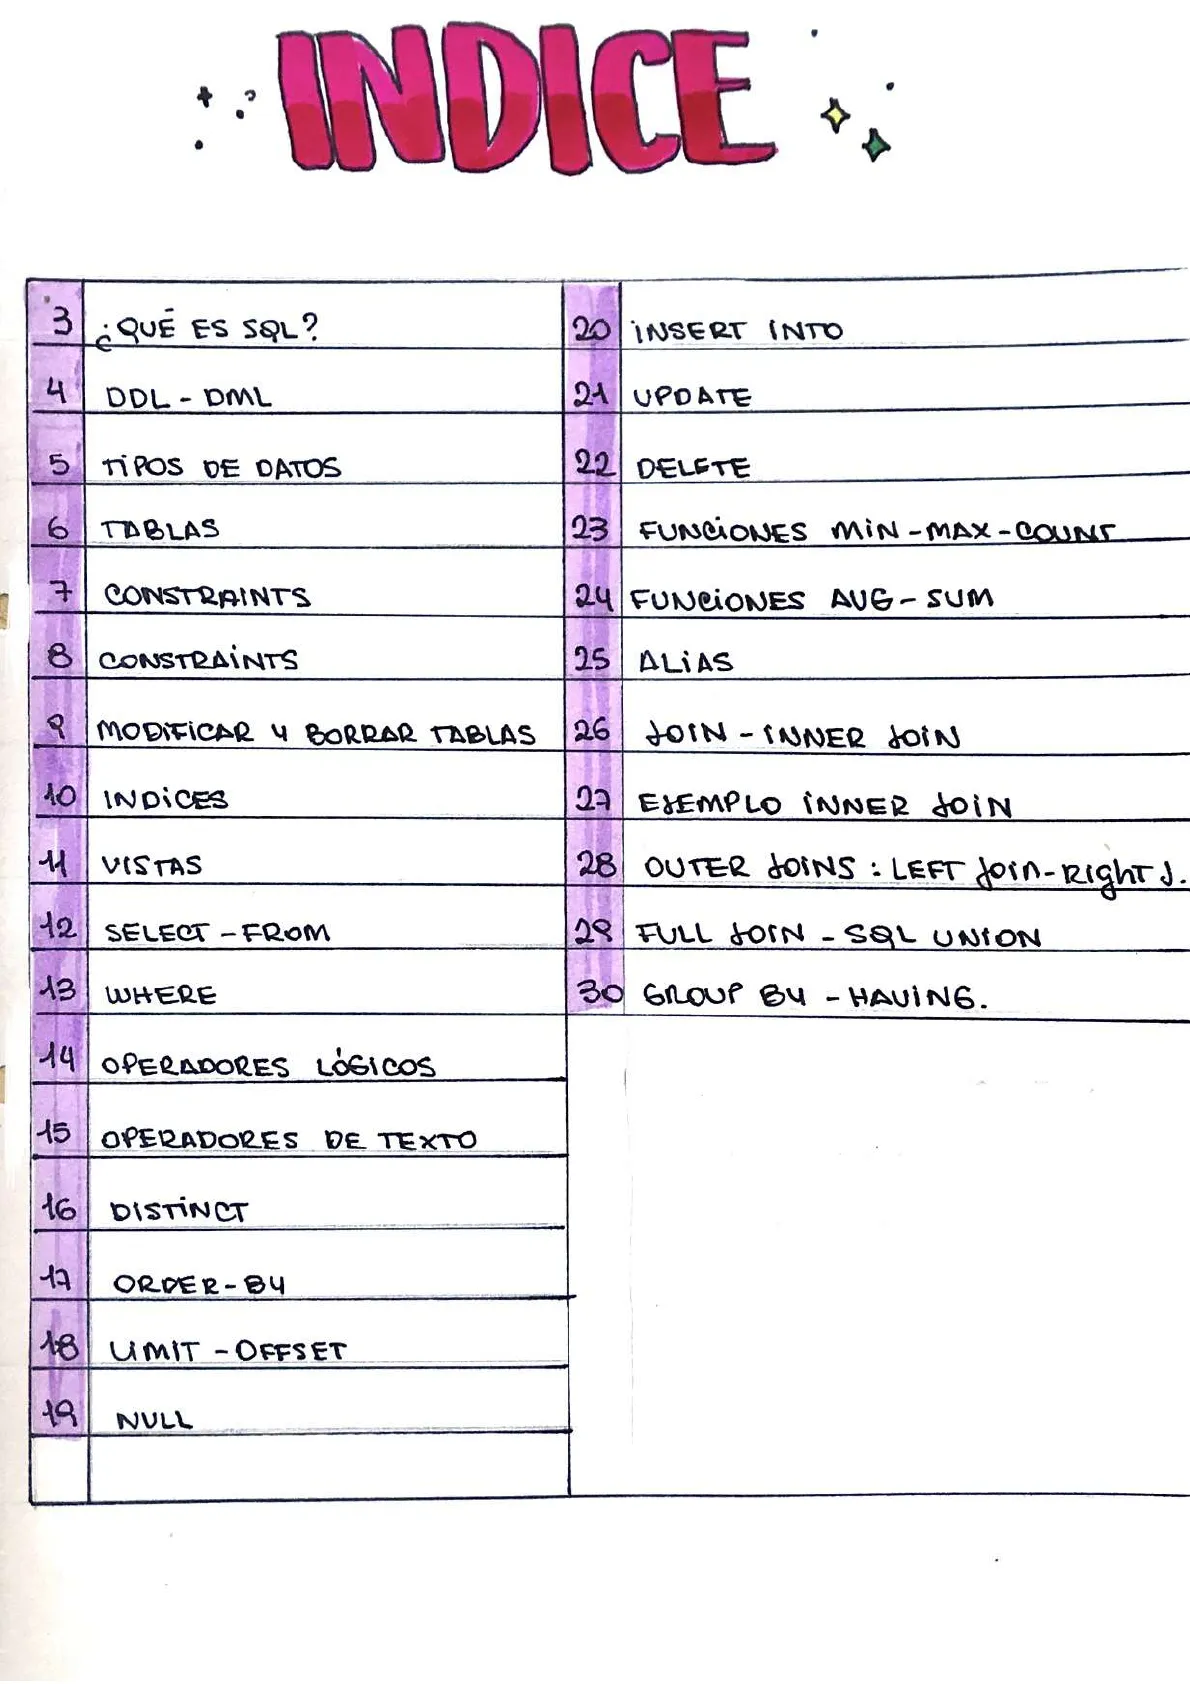 INDICE
3 ¿QUÉ ES SQL?
4 DDL - DML
5 TIPOS DE DATOS
6 TABLAS
7 CONSTRAINTS
8 CONSTRAINTS
9 MODIFICAR Y BORRAR TABLAS
10 INDICES
11 VISTAS
12 SELECT - FROM
13 WHERE
14 OPERADORES LÓGICOS
15 OPERADORES DE TEXTO
16 DISTINCT
17 ORDER - BY
18 LIMIT - OFFSET
19 NULL
20 INSERT INTO
21 UPDATE
22 DELETE
23 FUNCIONES MIN - MAX - COUNT
24 FUNCIONES AVG - SUM
25 ALIAS
26 JOIN - INNER JOIN
27 EJEMPLO INNER JOIN
28 OUTER JOINS : LEFT JOIN - RIGHT J.
29 FULL JOIN - SQL UNION
30 GROUP BY - HAVING.